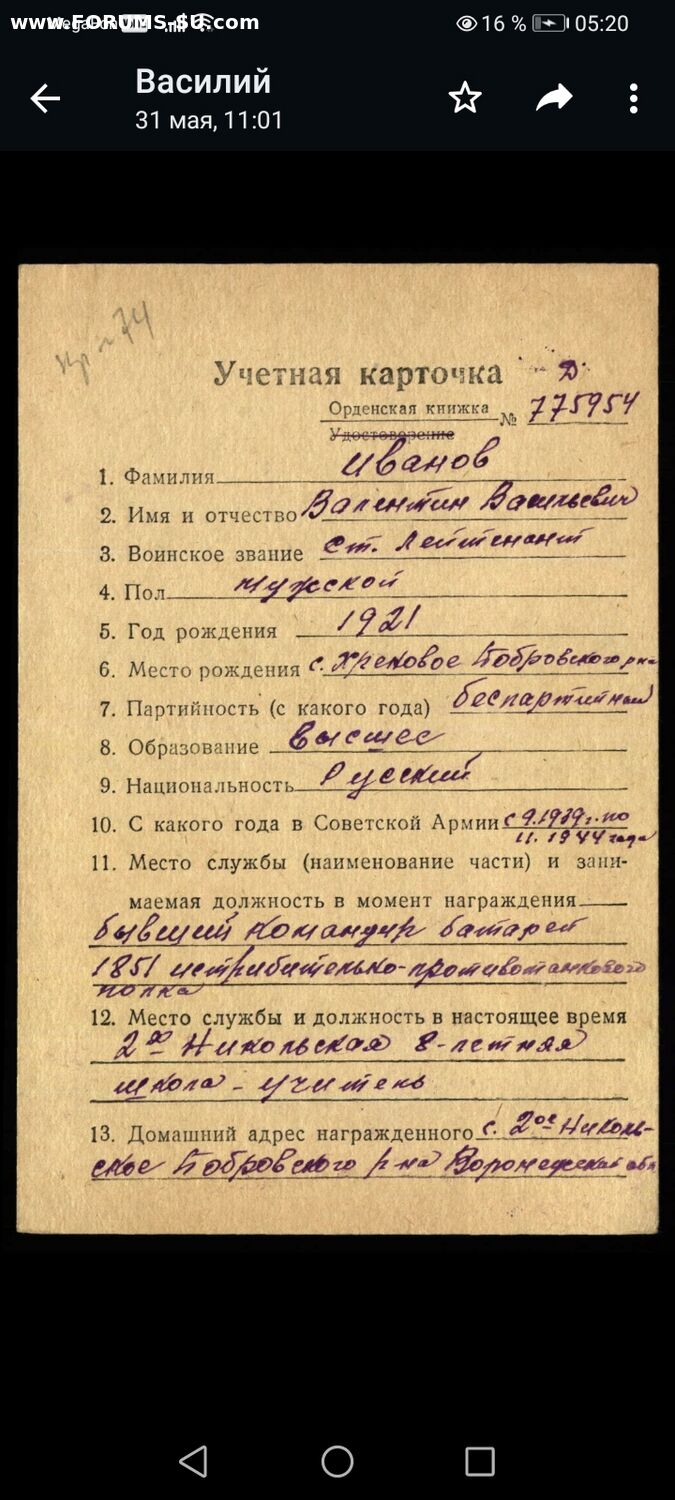 www.FORUMS-SU.com
16 % 05:20
Василий
31 мая, 11:01
Учетная карточка
Д
Орденская книжка № 775954
Удостоверение
1. Фамилия Иванов
2. Имя и отчество Валентин Васильевич
3. Воинское звание ст. лейтенант
4. Пол мужской
5. Год рождения 1921
6. Место рождения с. Хреновое Бобровского р-на
7. Партийность (с какого года) беспартийный
8. Образование высшее
9. Национальность Русский
10. С какого года в Советской Армии с 9.1939г. по
11. 1944 года
11. Место службы (наименование части) и зани-
маемая должность в момент награждения
бывший командир батареи
1851 истребительно-противотанкового
полка
12. Место службы и должность в настоящее время
2ая Никольская 8-летняя
школа - учитель
13. Домашний адрес награжденного с. 2ое Николь-
ское Бобровского р-на Воронежской обл